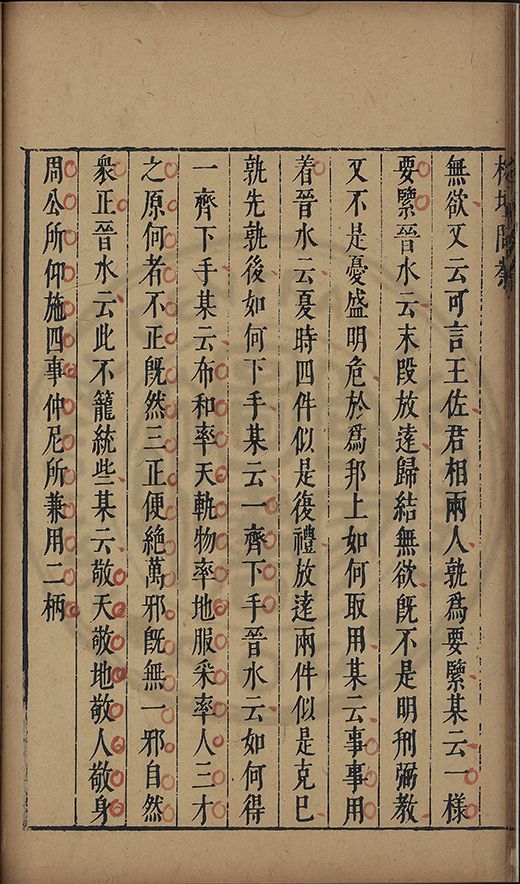 無欲又云可言王佐君相兩人孰爲要緊某云一樣
要緊晉水云末段放遠歸結無欲既不是明刑弼教
又不是憂盛明危於爲邦上如何取用某云事事用
着晉水云夏時四件似是復禮放遠兩件似是克已
孰先孰後如何下手某云一齊下手晉水云如何得
一齊下手某云布和率天軌物率地服采率人三才
之原何者不正既然三正便絶萬邪既無一邪自然
衆正晉水云此不籠統些某云敬天敬地敬人敬身
周公所仰施四事仲尼所兼用二柄